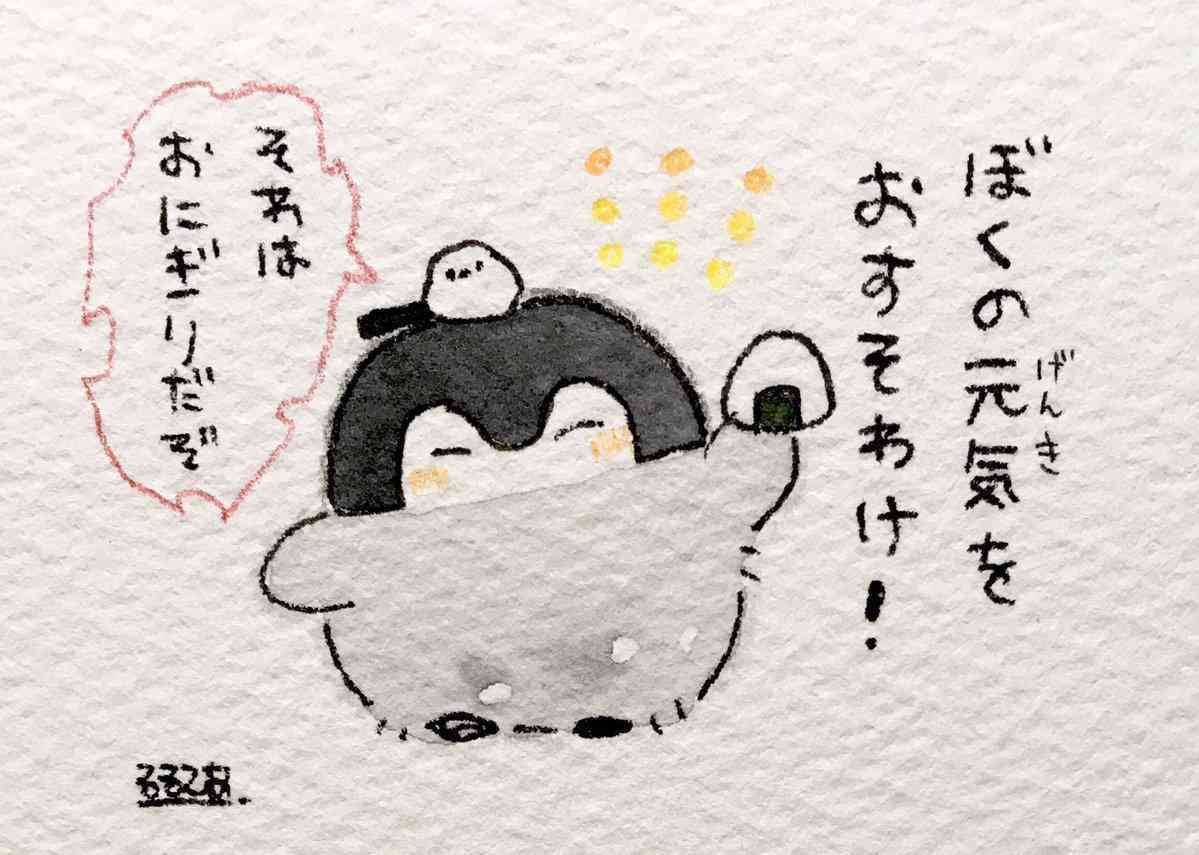 ぼくの元気を
げんき
おすそわけ!
それは
おにぎりだぞ
るるてあ.